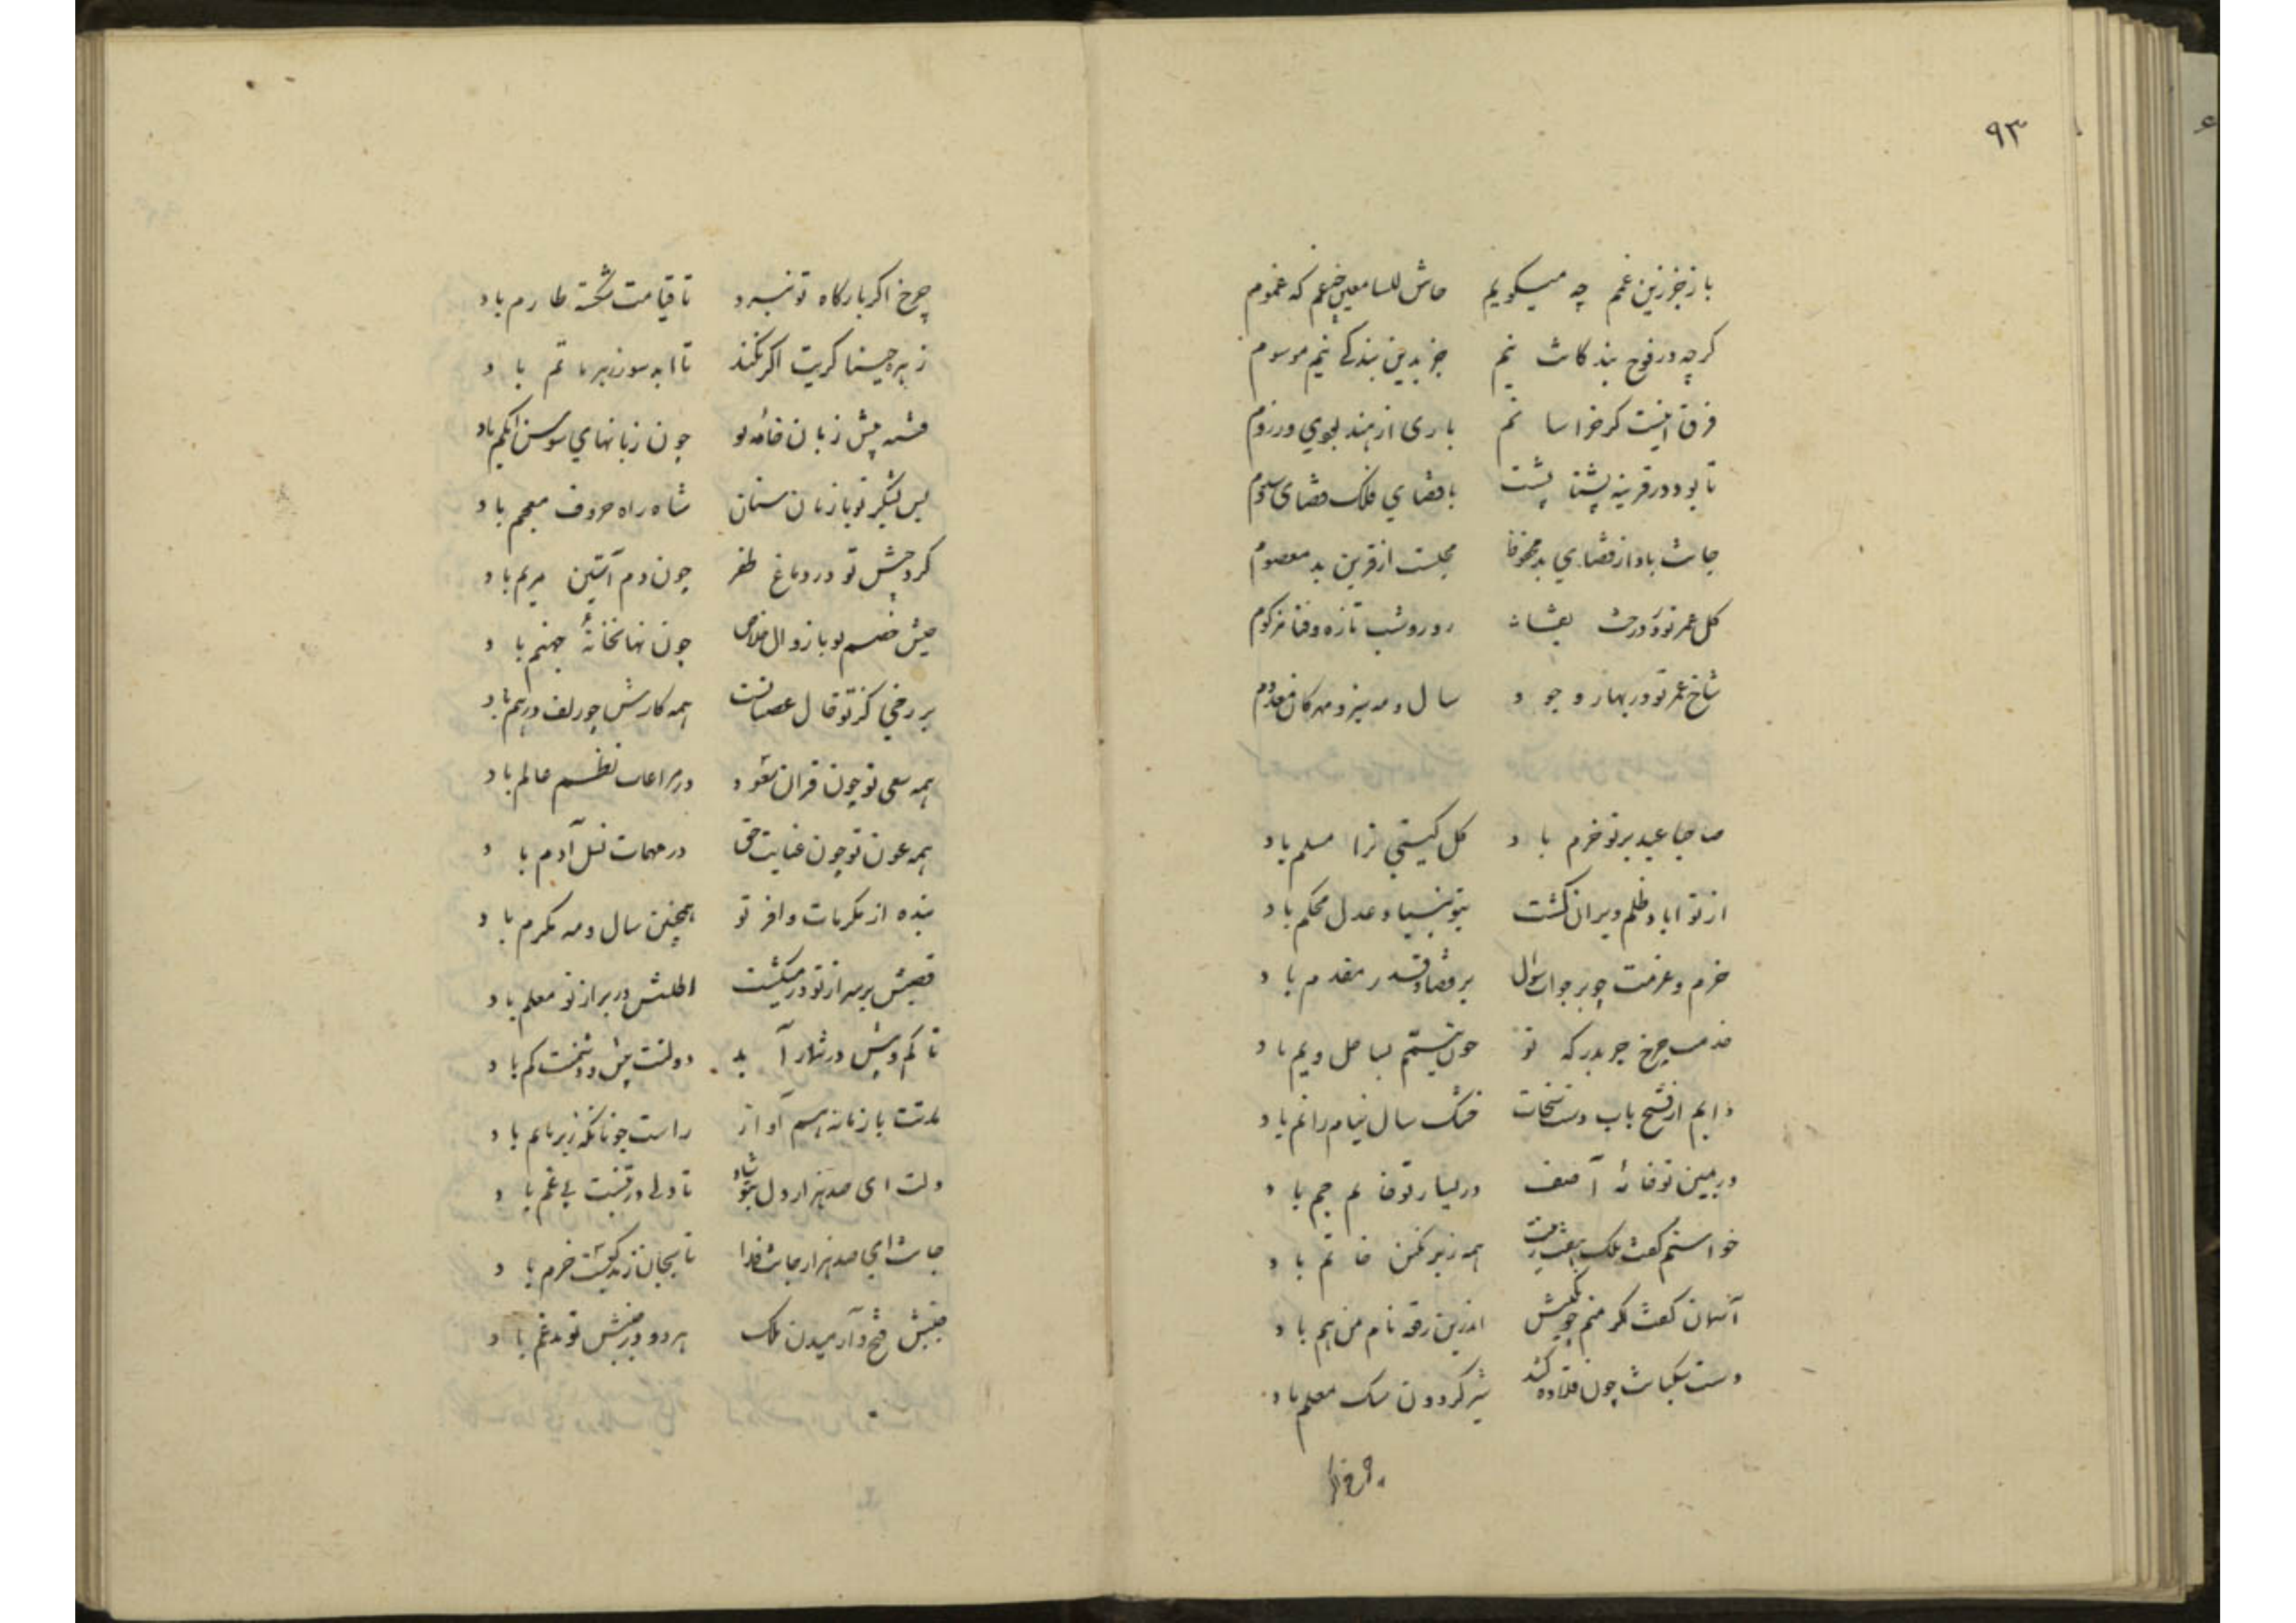 ٩٣
باز جز زین غم چه میکویم حاش للسامعین چه غم که غموم
کرچه در فوج بندکانت نیم جز بدین بندکی نیم موسوم
فرق اینست کز خراسانم باری از هند نبوی و ز روم
تا بود در قرینه پشتا پشت با قضای فلک قضای سدوم
جانت باد از قضای بد محفوظ مجلست از قرین بد معصوم
کل عمر تو در درخت بقات روز و شب تازه و فنا مزکوم
شاخ عمر تو در بهار وجود سال و مه سبز و مهرکان معدوم
صاحبا عید بر تو خرم باد کل کیتی ترا مسلم باد
از تو اباد ظلم ویران کشت بتو بنیاد عدل محکم باد
حزم و عزمت چو بر جواب سؤال بر قضا و قدر مقدم باد
خدمت چرخ جز بدرکه تو چون تیمم بساحل و یم باد
دایم از فتح باب دست سخات خشک سال نیاز را نم باد
در یمین تو خامهٔ آصف در یسار تو خاتم جم باد
خواستم کفت ملک هفت اقلیمت همه زیر نکین خاتم باد
آسمان کفت مکر منم چو نکینش اندرین رقعه نام من هم باد
دست سکبانت چون قلاده کند شیر کردون سک معلم باد
چرخ اکر
چرخ اکر بارکاه تو نبرد تا قیامت شکسته طارم باد
زهره خنیاکریت اکر نکند تا ابد سور زهره ماتم باد
فتنه پیش زبان خامه تو چون زبانهای سوسن ابکم باد
پس لشکر تو باز زبان سنان شاه راه حروف معجم باد
کرد جیش تو در دماغ ظفر چون دم آستین مریم باد
حبس خصم تو با زوال خلاص چون نهانخانهٔ جهنم باد
بر رخی کز تو خال عصیانست همه کارش چو زلف درهم باد
همه سعی تو چون قران سعود در مراعات نظم عالم باد
همه عون تو چون عنایت حق در مهمات نسل آدم باد
بنده از مکرمات وافر تو همچنین سال و مه مکرم باد
قصبش بر سر از تو درمیکشت اطلسش در بر از تو معلم باد
تا کم و بیش در شمار آید دولتت بیش و دشمنت کم باد
مدتت با زمانه هم آواز راست چونانکه زیر با بم باد
دلت ای صد هزار دل بتو شاد تا دلی در تنست بی غم باد
جانت ای صد هزار جانت فدا تا بجان زنده کیست خرم باد
جنبش فتح و آرمیدن ملک هر دو در جنبش تو مدغم باد